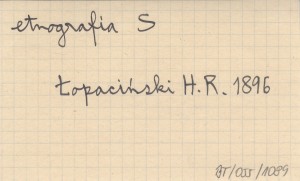 etnografia S
Łopaciński H.R. 1896
BT/055/1089